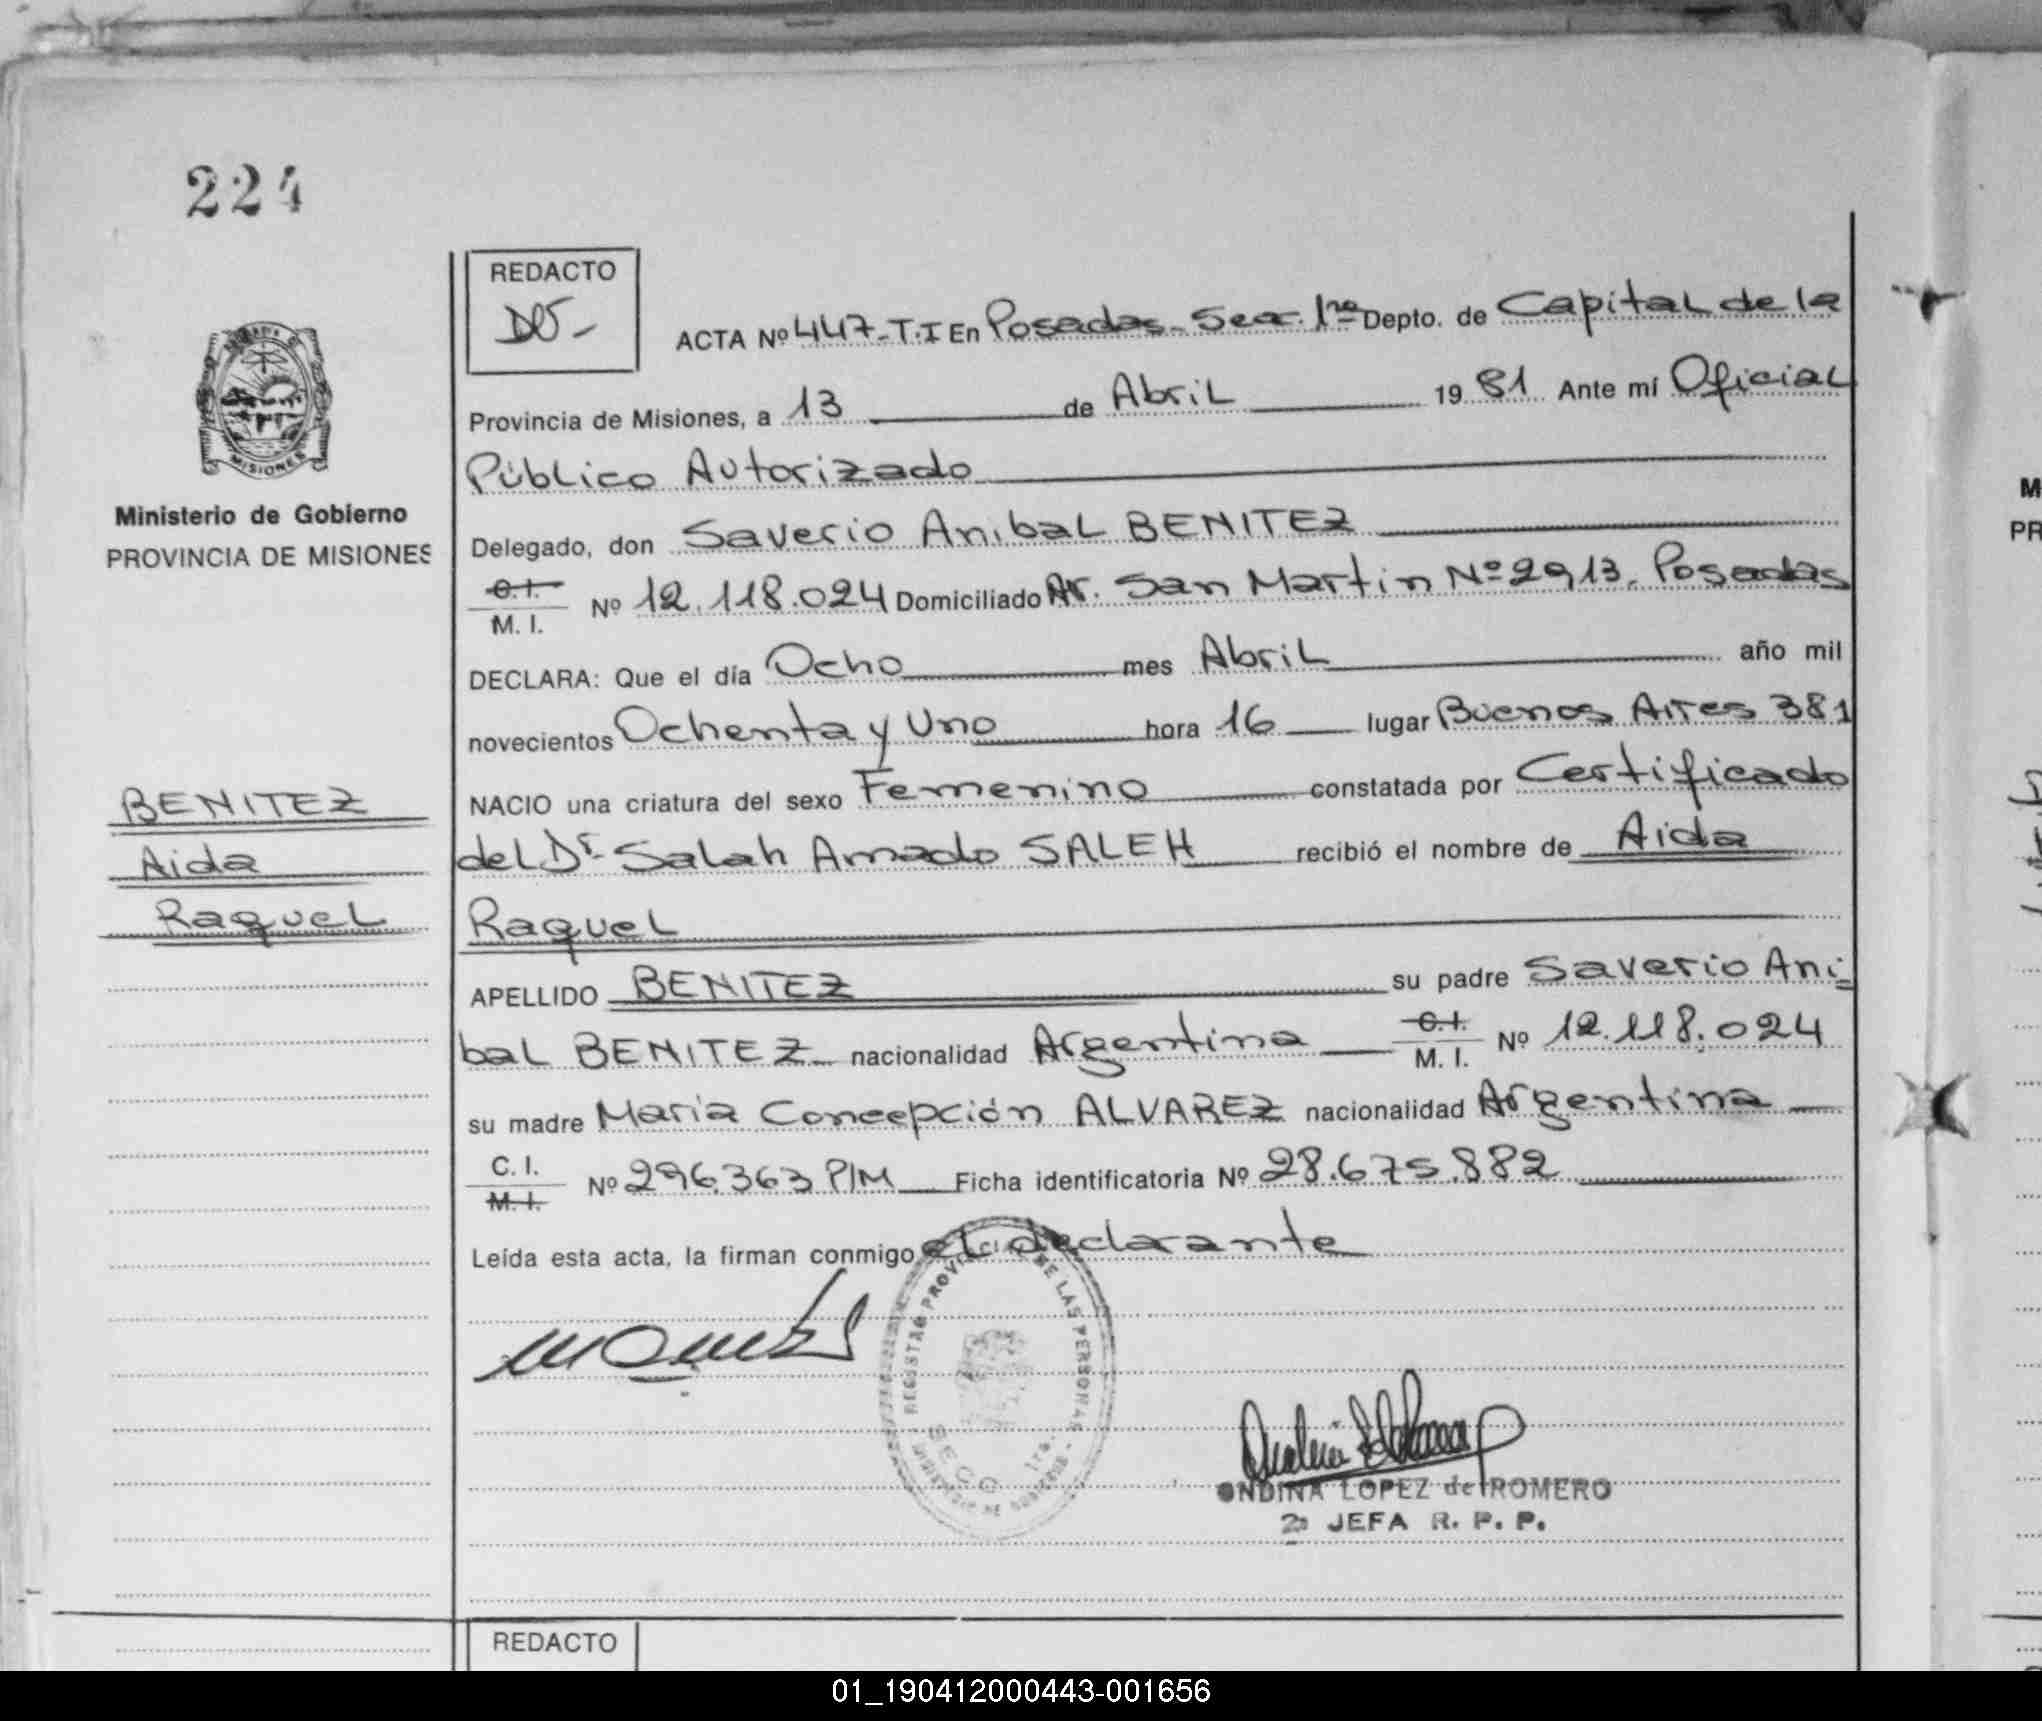 224
REDACTO
ACTA Nº 447-T.I En Posadas - Secc. 1ra Depto. de Capital de la
Provincia de Misiones, a 13 de Abril 1981 Ante mí Oficial
Público Autorizado
Delegado, don Saverio Anibal BENITEZ
C.I.
M. I. Nº 12.118.024 Domiciliado Av. San Martin Nº 2913. Posadas
DECLARA: Que el día Ocho mes Abril año mil
novecientos Ochenta y Uno hora 16 lugar Buenos Aires 381
NACIO una criatura del sexo Femenino constatada por Certificado
del Dr. Salah Amado SALEH recibió el nombre de Aida
Raquel
APELLIDO BENITEZ su padre Saverio Ani-
bal BENITEZ nacionalidad Argentina C.I.
M. I. Nº 12.118.024
su madre Maria Concepción ALVAREZ nacionalidad Argentina
C. I.
M. I. Nº 296.363 P/M Ficha identificatoria Nº 28.675.882
Leída esta acta, la firman conmigo el declarante
MISIONES
Ministerio de Gobierno
PROVINCIA DE MISIONES
BENITEZ
Aida
Raquel
DE LAS PERSONAS
SECC. 1ra.
ONDINA LOPEZ de ROMERO
2a JEFA R. P. P.
REDACTO
M
PR
01_190412000443-001656